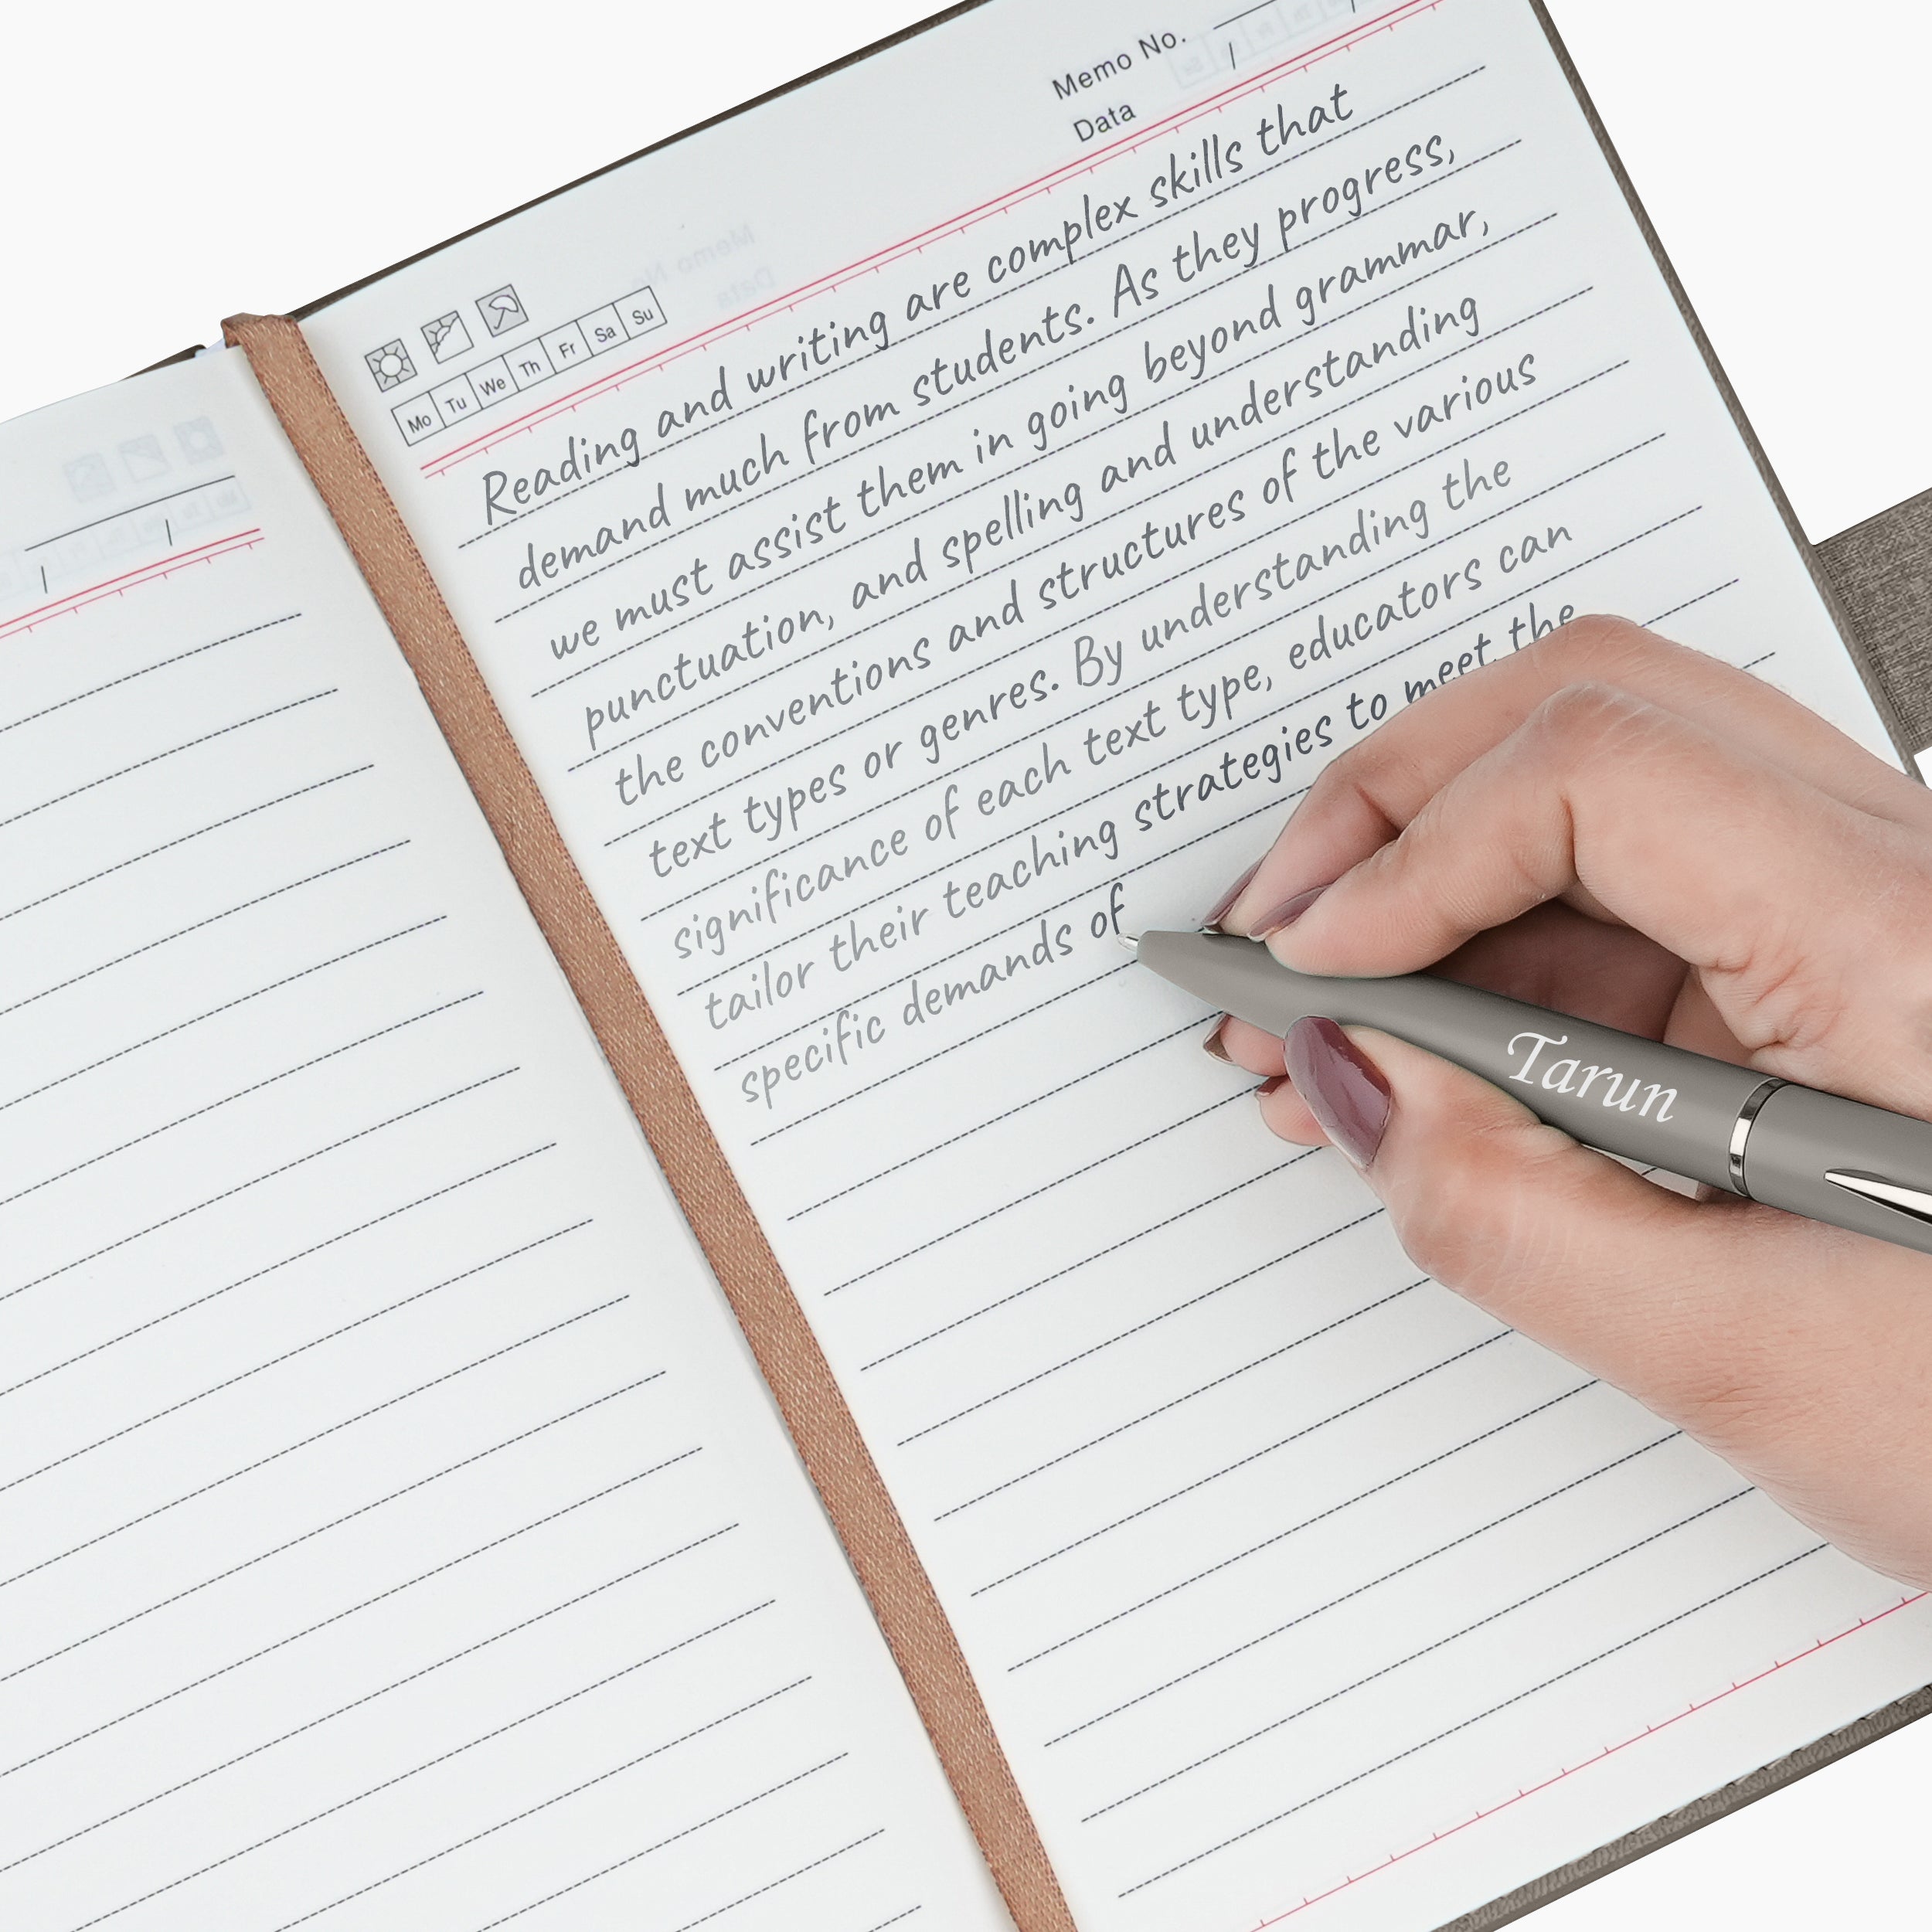 Memo No.
Data
Mo Tu We Th Fr Sa Su
Reading and writing are complex skills that
demand much from students. As they progress,
we must assist them in going beyond grammar,
punctuation, and spelling and understanding
the conventions and structures of the various
text types or genres. By understanding the
significance of each text type, educators can
tailor their teaching strategies to meet the
specific demands of
Tarun